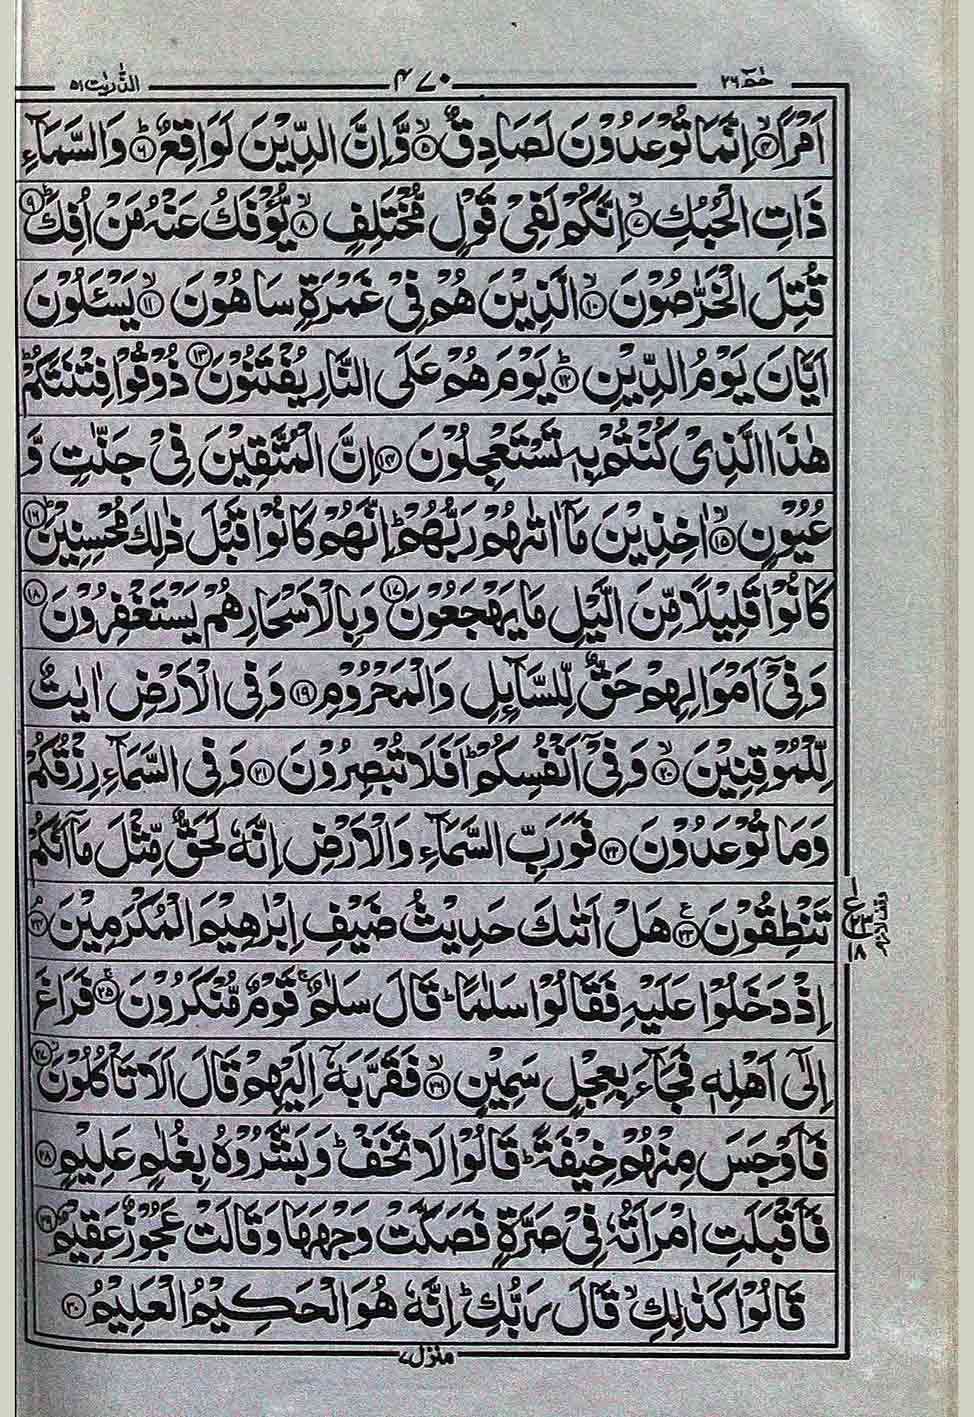 حٰمٓ ٢٦ ٤٧٠ الذّٰريٰت ٥١
اَمْرًا ﴿٤﴾ اِنَّمَا تُوْعَدُوْنَ لَصَادِقٌ ﴿٥﴾ وَّاِنَّ الدِّيْنَ لَوَاقِعٌ ﴿٦﴾ وَالسَّمَآءِ
ذَاتِ الْحُبُكِ ﴿٧﴾ اِنَّكُمْ لَفِيْ قَوْلٍ مُّخْتَلِفٍ ﴿٨﴾ يُّؤْفَكُ عَنْهُ مَنْ اُفِكَ ﴿٩﴾
قُتِلَ الْخَرّٰصُوْنَ ﴿١٠﴾ الَّذِيْنَ هُمْ فِيْ غَمْرَةٍ سَاهُوْنَ ﴿١١﴾ يَسْـَٔلُوْنَ
اَيَّانَ يَوْمُ الدِّيْنِ ﴿١٢﴾ يَوْمَ هُمْ عَلَى النَّارِ يُفْتَنُوْنَ ﴿١٣﴾ ذُوْقُوْا فِتْنَتَكُمْ
هٰذَا الَّذِيْ كُنْتُمْ بِهٖ تَسْتَعْجِلُوْنَ ﴿١٤﴾ اِنَّ الْمُتَّقِيْنَ فِيْ جَنّٰتٍ وَّ
عُيُوْنٍ ﴿١٥﴾ اٰخِذِيْنَ مَآ اٰتٰىهُمْ رَبُّهُمْ ؕ اِنَّهُمْ كَانُوْا قَبْلَ ذٰلِكَ مُحْسِنِيْنَ ﴿١٦﴾
كَانُوْا قَلِيْلًا مِّنَ الَّيْلِ مَا يَهْجَعُوْنَ ﴿١٧﴾ وَبِالْاَسْحَارِ هُمْ يَسْتَغْفِرُوْنَ ﴿١٨﴾
وَفِيْٓ اَمْوَالِهِمْ حَقٌّ لِّلسَّآئِلِ وَالْمَحْرُوْمِ ﴿١٩﴾ وَفِي الْاَرْضِ اٰيٰتٌ
لِّلْمُوْقِنِيْنَ ﴿٢٠﴾ وَفِيْٓ اَنْفُسِكُمْ ؕ اَفَلَا تُبْصِرُوْنَ ﴿٢١﴾ وَفِي السَّمَآءِ رِزْقُكُمْ
وَمَا تُوْعَدُوْنَ ﴿٢٢﴾ فَوَرَبِّ السَّمَآءِ وَالْاَرْضِ اِنَّهٗ لَحَقٌّ مِّثْلَ مَآ اَنَّكُمْ
تَنْطِقُوْنَ ﴿٢٣﴾ هَلْ اَتٰىكَ حَدِيْثُ ضَيْفِ اِبْرٰهِيْمَ الْمُكْرَمِيْنَ ﴿٢٤﴾
اِذْ دَخَلُوْا عَلَيْهِ فَقَالُوْا سَلٰمًا ؕ قَالَ سَلٰمٌ ۚ قَوْمٌ مُّنْكَرُوْنَ ﴿٢٥﴾ فَرَاغَ
اِلٰٓى اَهْلِهٖ فَجَآءَ بِعِجْلٍ سَمِيْنٍ ﴿٢٦﴾ فَقَرَّبَهٗٓ اِلَيْهِمْ قَالَ اَلَا تَاْكُلُوْنَ ﴿٢٧﴾
فَاَوْجَسَ مِنْهُمْ خِيْفَةً ؕ قَالُوْا لَا تَخَفْ ؕ وَبَشَّرُوْهُ بِغُلٰمٍ عَلِيْمٍ ﴿٢٨﴾
فَاَقْبَلَتِ امْرَاَتُهٗ فِيْ صَرَّةٍ فَصَكَّتْ وَجْهَهَا وَقَالَتْ عَجُوْزٌ عَقِيْمٌ ﴿٢٩﴾
قَالُوْا كَذٰلِكِ ۙ قَالَ رَبُّكِ ؕ اِنَّهٗ هُوَ الْحَكِيْمُ الْعَلِيْمُ ﴿٣٠﴾
١
ع
٢٣
١٨
وقف لازم
منزل ٧